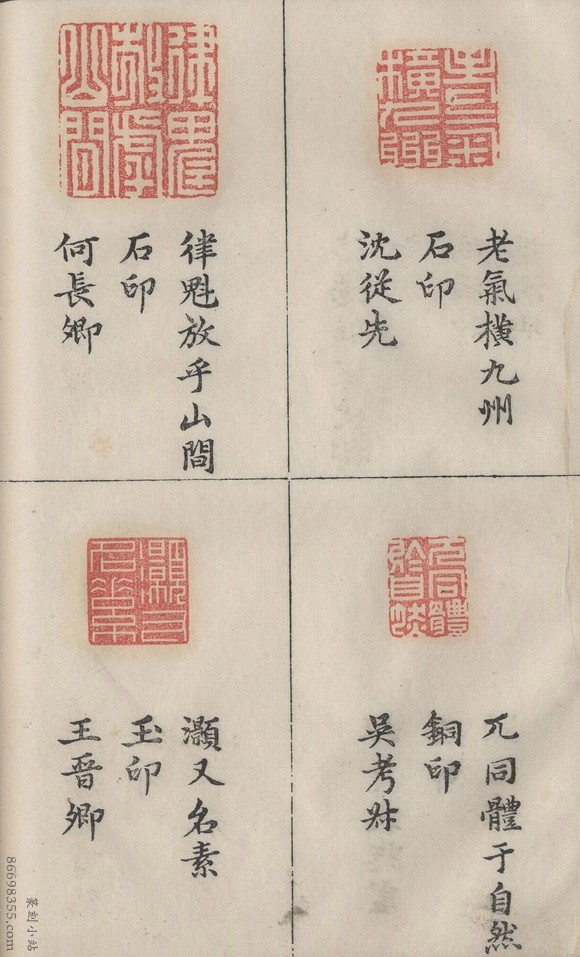 老氣橫九州
石印
沈從先
律魁放乎山間
石印
何長卿
兀同體于自然
銅印
吳考叔
灝又名素
玉印
王晉卿
篆刻小站
86698355.com